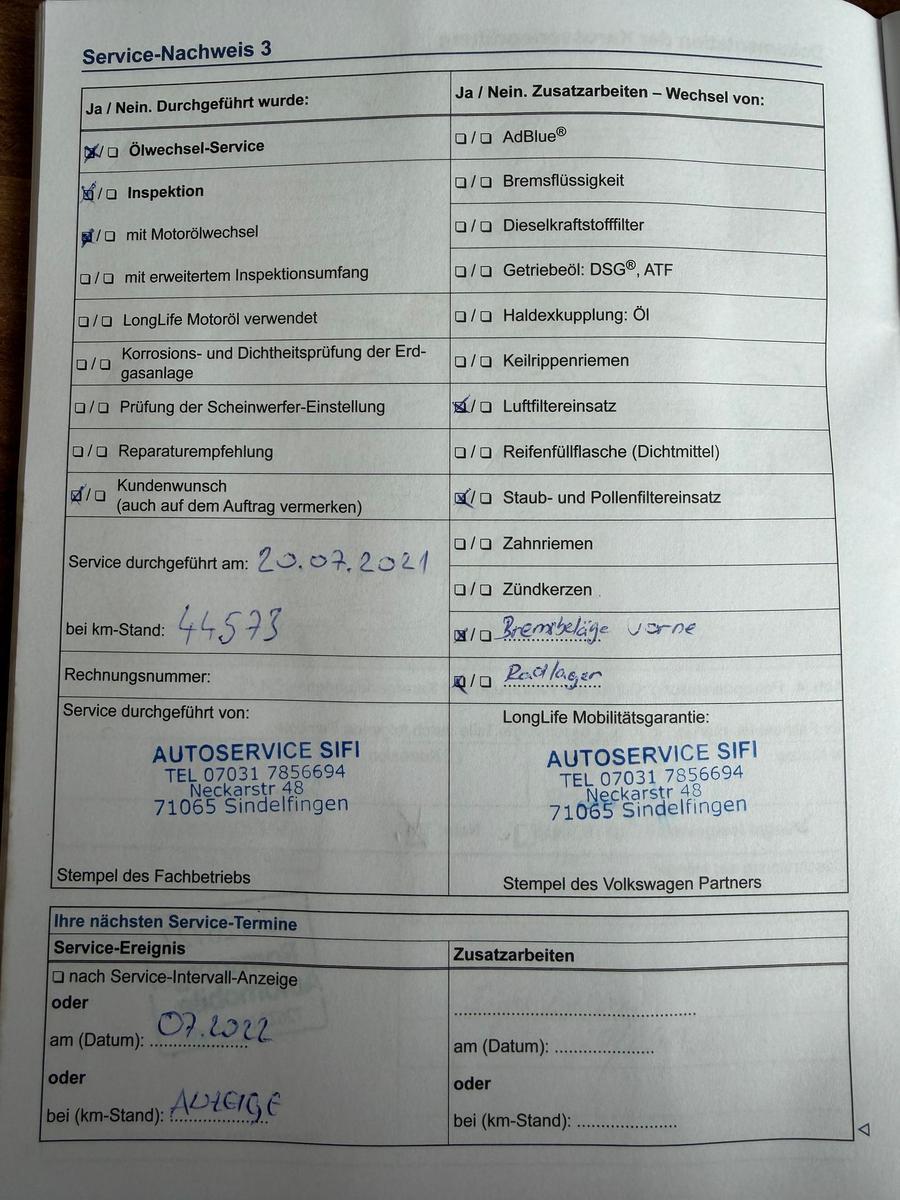 Service-Nachweis 3
Ja / Nein. Durchgeführt wurde:
☒/❏ Ölwechsel-Service
☒/❏ Inspektion
☒/❏ mit Motorölwechsel
❏/❏ mit erweitertem Inspektionsumfang
❏/❏ LongLife Motoröl verwendet
❏/❏ Korrosions- und Dichtheitsprüfung der Erd-
gasanlage
❏/❏ Prüfung der Scheinwerfer-Einstellung
❏/❏ Reparaturempfehlung
☒/❏ Kundenwunsch
(auch auf dem Auftrag vermerken)
Service durchgeführt am: 20.07.2021
bei km-Stand: 44573
Rechnungsnummer:
Ja / Nein. Zusatzarbeiten – Wechsel von:
❏/❏ AdBlue®
❏/❏ Bremsflüssigkeit
❏/❏ Dieselkraftstofffilter
❏/❏ Getriebeöl: DSG®, ATF
❏/❏ Haldexkupplung: Öl
❏/❏ Keilrippenriemen
☒/❏ Luftfiltereinsatz
❏/❏ Reifenfüllflasche (Dichtmittel)
☒/❏ Staub- und Pollenfiltereinsatz
❏/❏ Zahnriemen
❏/❏ Zündkerzen
☒/❏ Bremsbeläge vorne
☒/❏ Radlager
Service durchgeführt von:
AUTOSERVICE SIFI
TEL 07031 7856694
Neckarstr 48
71065 Sindelfingen
Stempel des Fachbetriebs
LongLife Mobilitätsgarantie:
AUTOSERVICE SIFI
TEL 07031 7856694
Neckarstr 48
71065 Sindelfingen
Stempel des Volkswagen Partners
Ihre nächsten Service-Termine
Service-Ereignis
❏ nach Service-Intervall-Anzeige
oder
am (Datum): 07.2022
oder
bei (km-Stand): ANZEIGE
Zusatzarbeiten
am (Datum):
oder
bei (km-Stand):